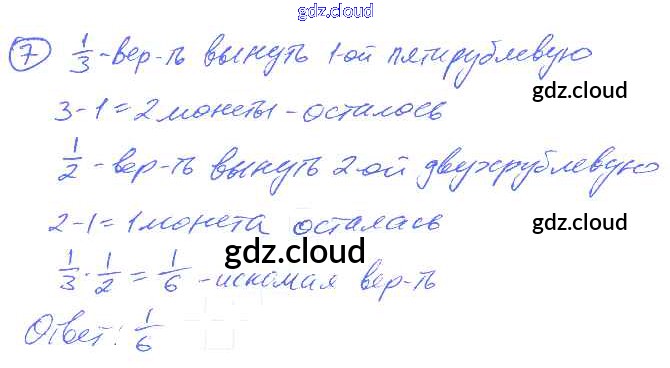 gdz.cloud
7 1/3 - вер-ть вынуть 1-ой пятирублевую
gdz.cloud
3-1=2 монеты - осталось
1/2 - вер-ть вынуть 2-ой двухрублевую
2-1=1 монета осталась
gdz.cloud
gdz.cloud
1/3 · 1/2 = 1/6 - искомая вер-ть
Ответ: 1/6